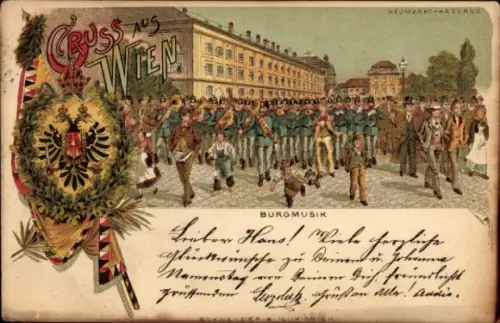 GRUSS AUS
WIEN
HEUMARKT-KASERNE
BURGMUSIK
Lieber Hans! Viele herzliche
Glückwünsche zu Deinem u Johanna
Namenstag von Deinem Dich freundlichst
grüssenden Leopold. Grüß an Alle! Addio.
SCHNEIDER & LUX WIEN